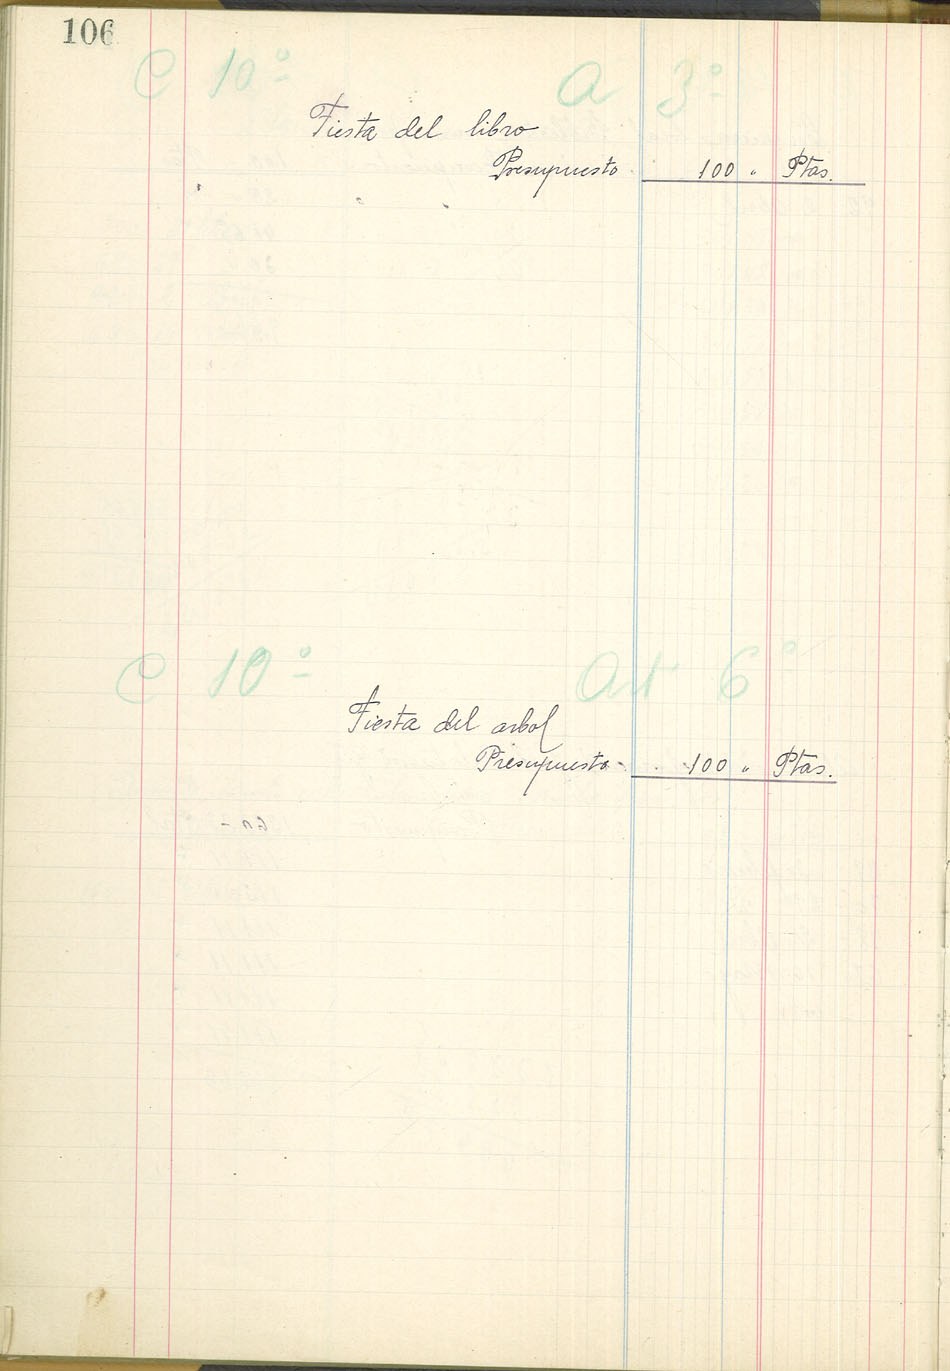 106
C 10º A 3º
Fiesta del libro
Presupuesto 100 " Ptas.
C 10º Art 6º
Fiesta del arbol
Presupuesto - . 100 " Ptas.